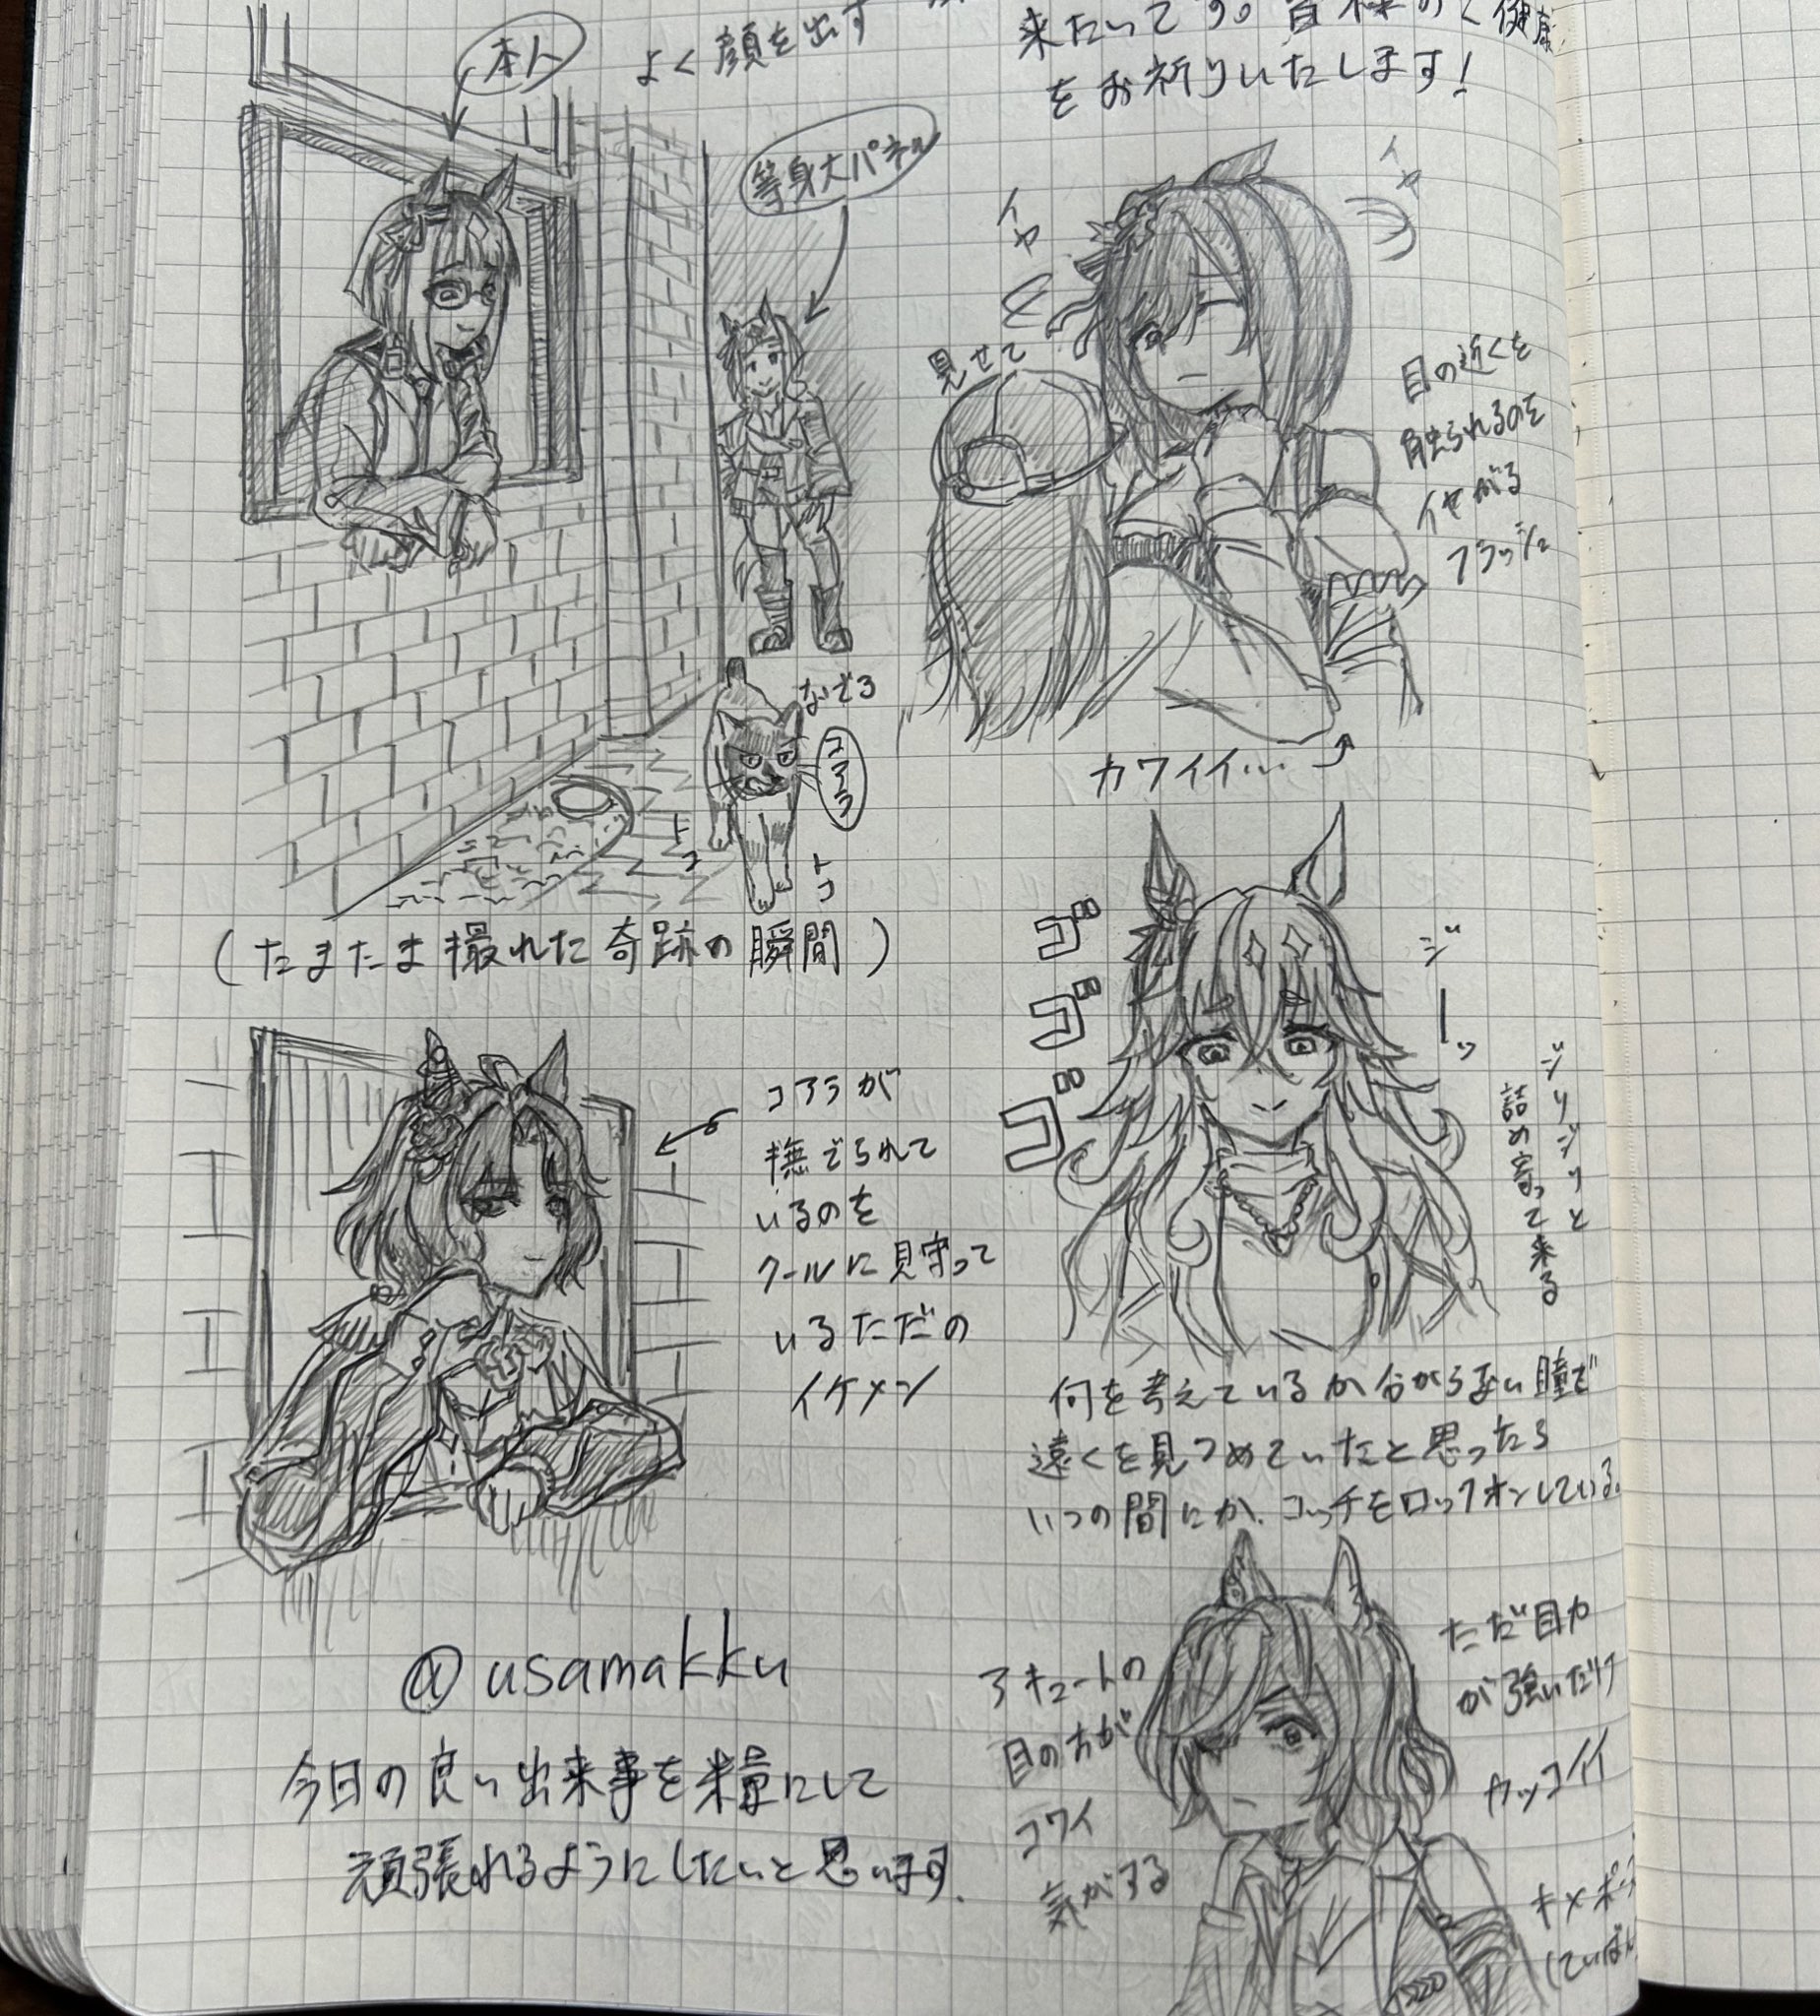 本人
よく顔を出す
等身大パネル
なぞろ
コアラ
トコ
トコ
(たまたま撮れた奇跡の瞬間)
コアラが
撫でられて
いるのを
クールに見守って
いるただの
イケメン
@usamakku
今日の良い出来事を糧にして
頑張れるようにしたいと思います.
来たいです。皆様のご健康
をお祈りいたします!
イヤ
イヤ
見せて
目の近くを
触られるのを
イヤがる
フラッシュ
カワイイ…
ゴゴゴ
ジーッ
ジリジリと
詰め寄って来る
何を考えているか分からない瞳で
遠くを見つめていたと思ったら
いつの間にか、コッチをロックオンしている。
アキュートの
目の方が
コワイ
気がする
ただ目力
が強いだけ
カッコイイ
キメポーズ